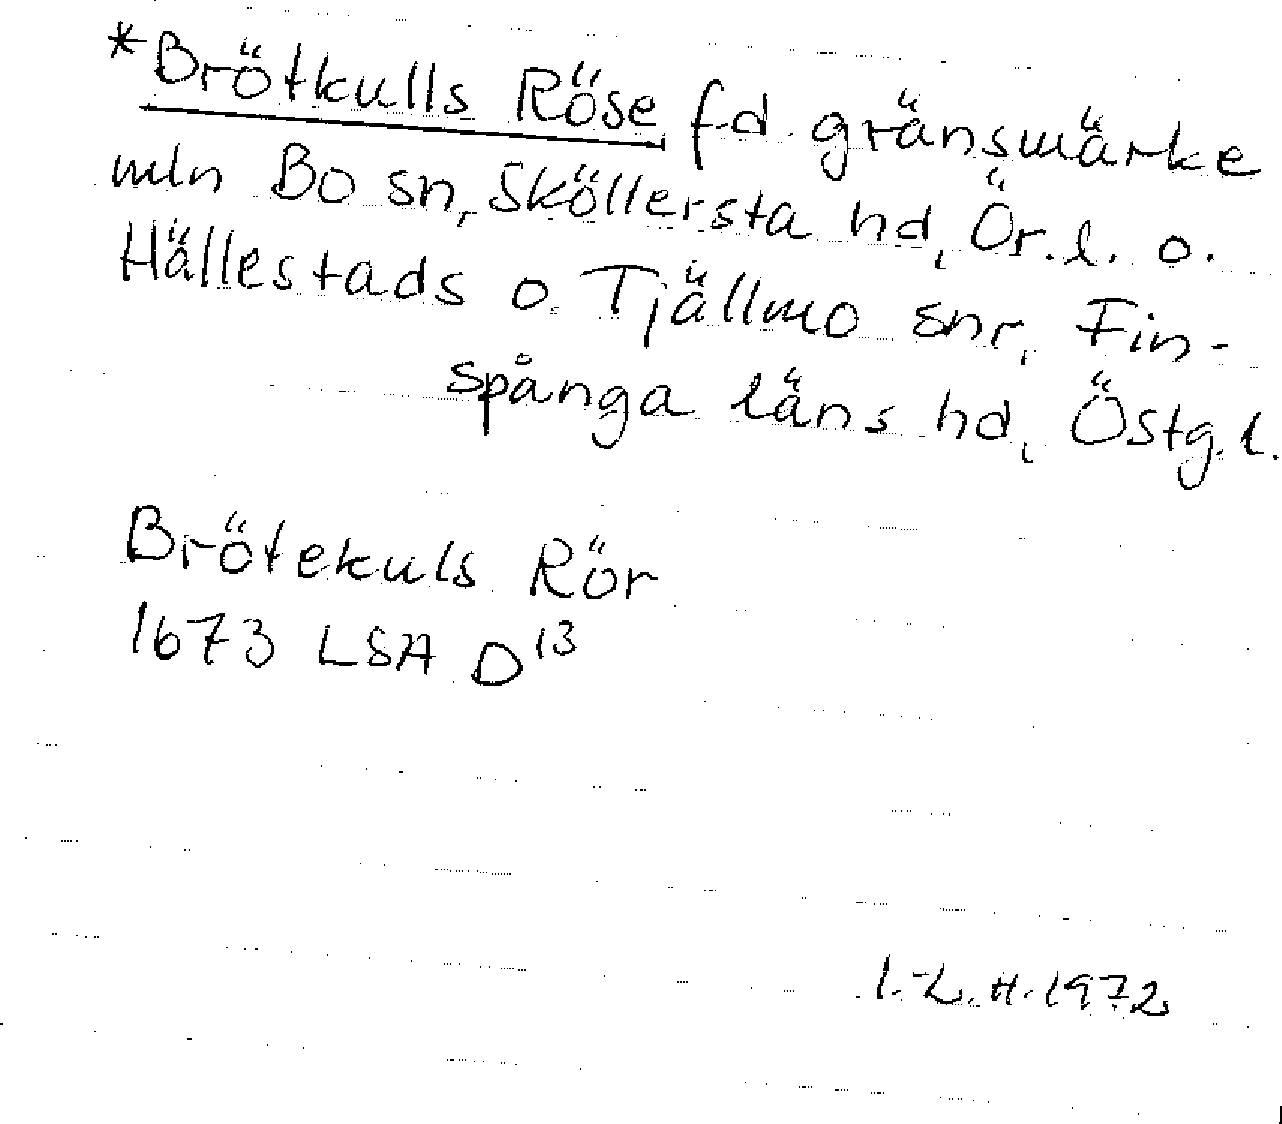 *Brötkulls Röse fd. gränsmärke
mln Bo sn, Sköllersta hd, Ör. l. o.
Hällestads o. Tjällmo snr, Fin-
spånga läns hd, Östg. l.
Brötekuls Rör
1673 LSA D13
I.-L. H. 1972